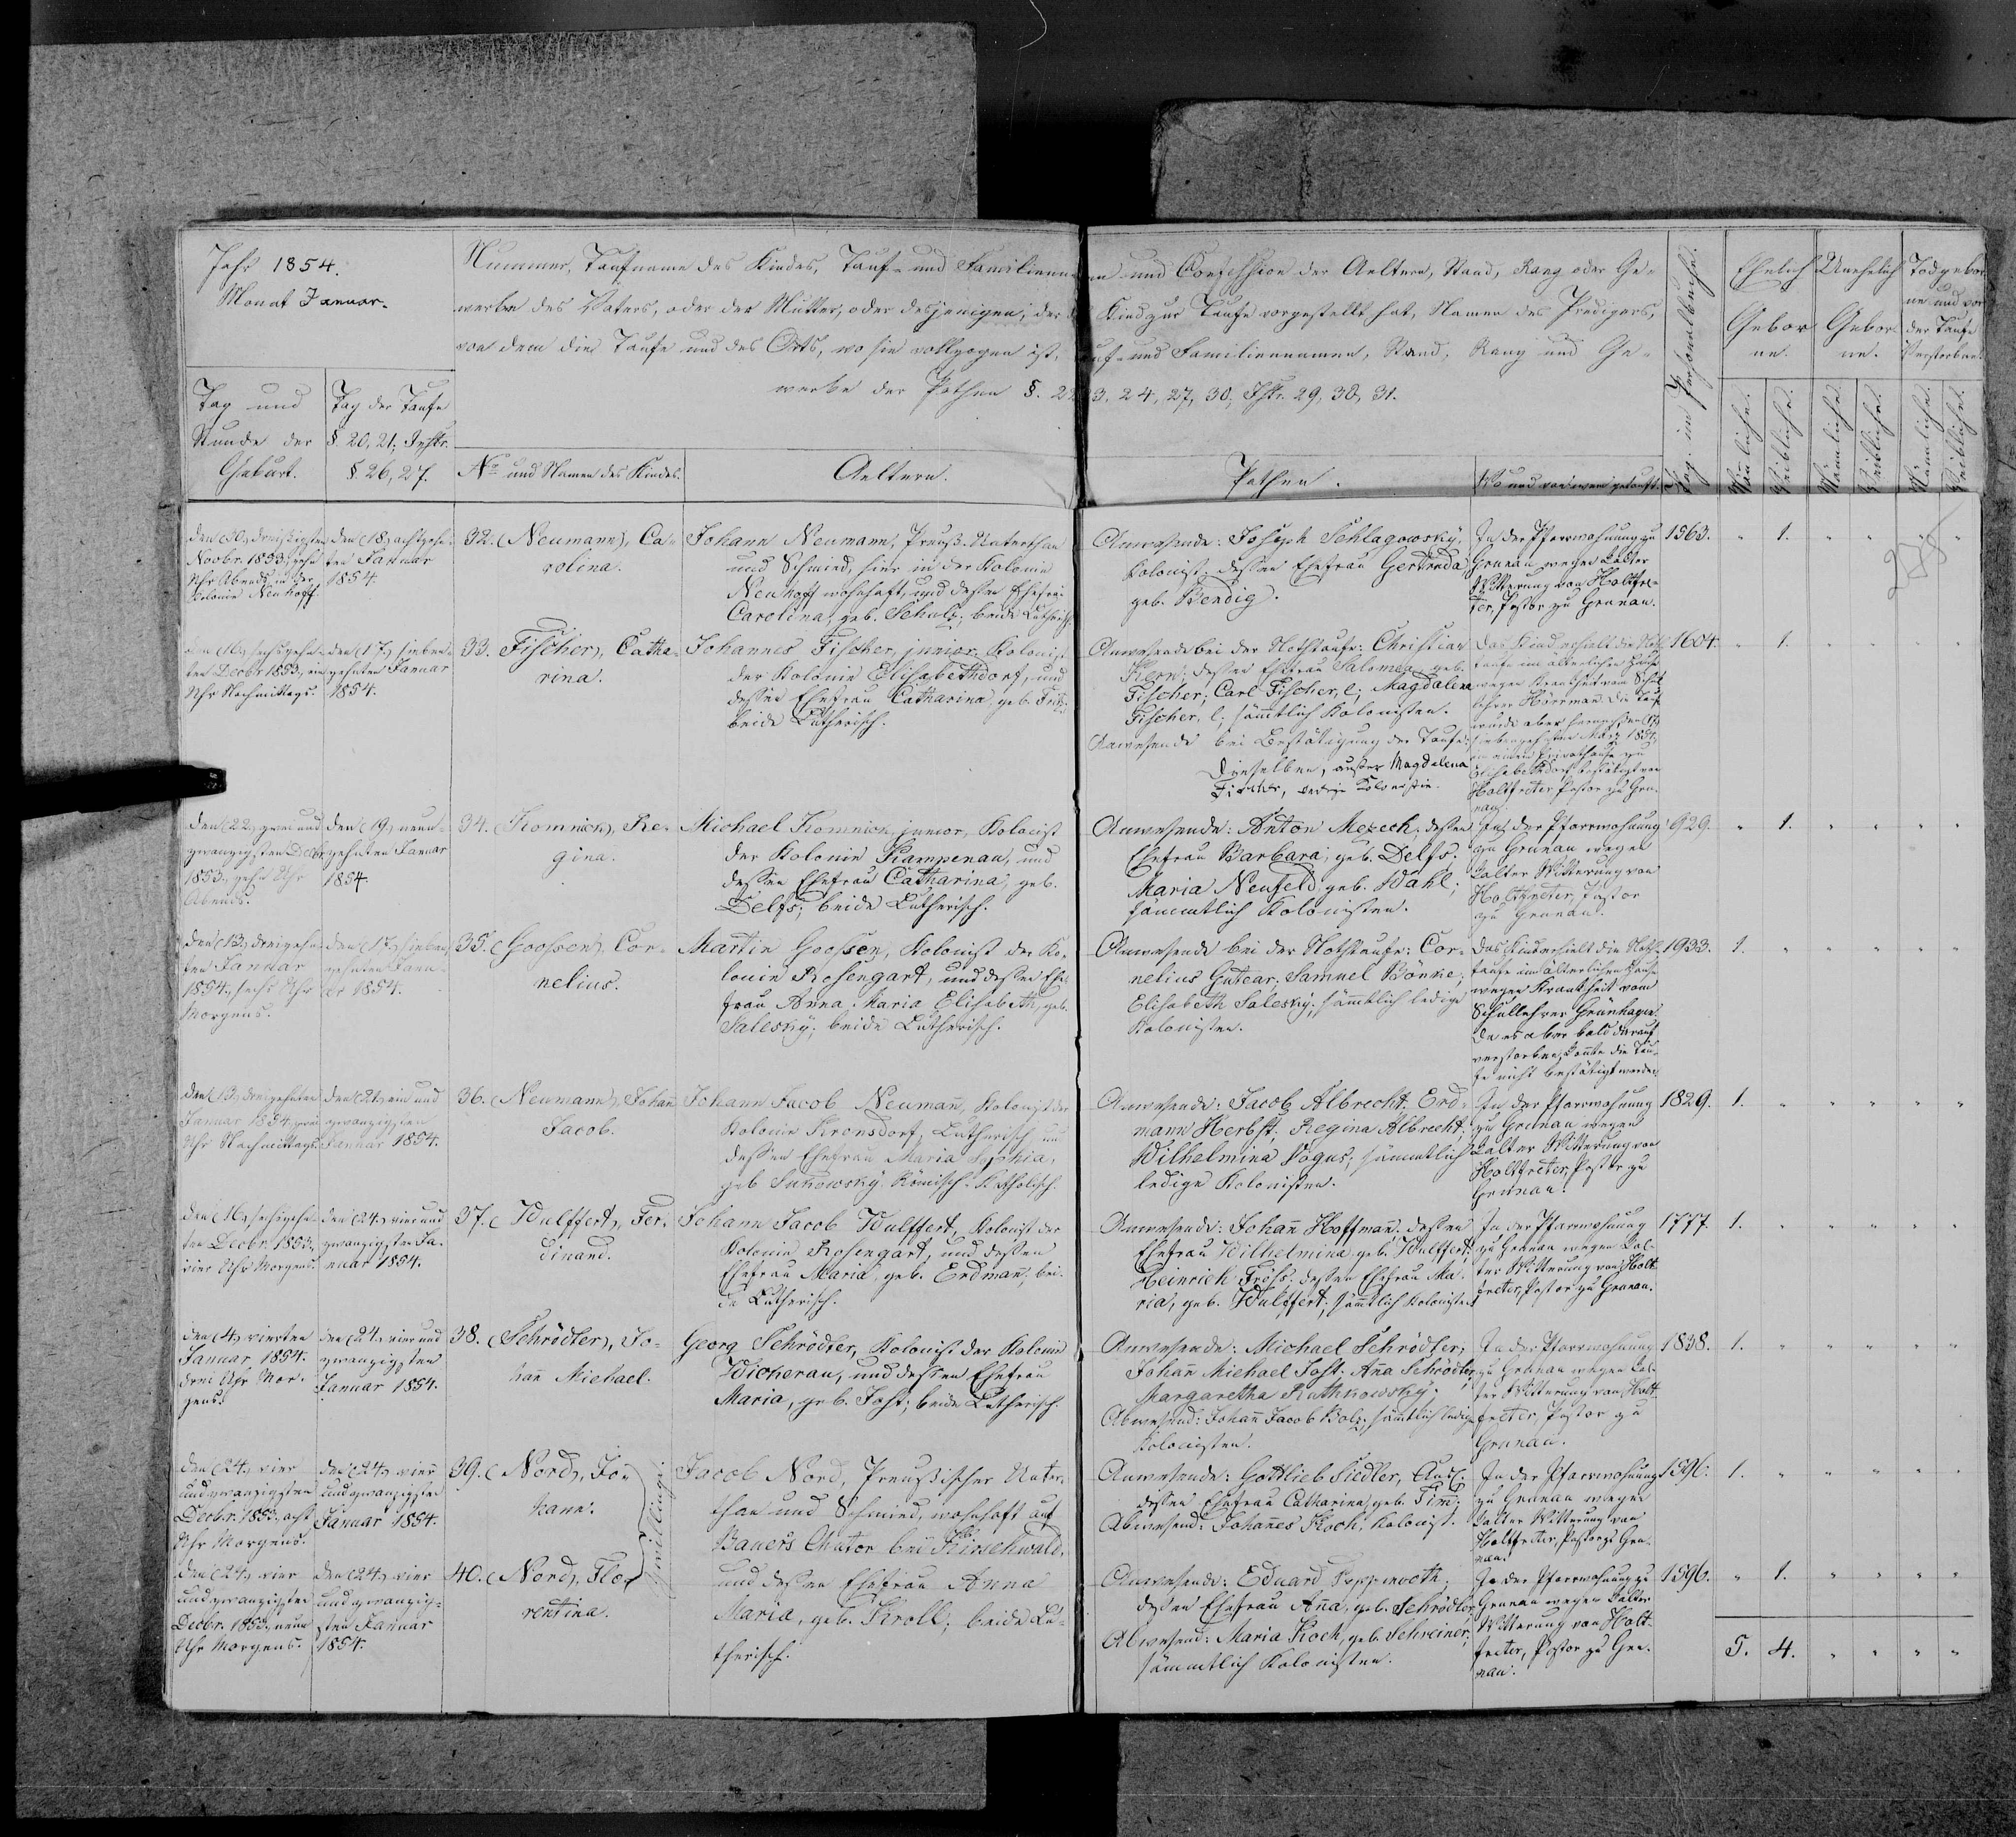 Jahr 1854.
Monat Januar.
Nummer, Taufname des Kindes, Tauf- und Familienna- en und Confession der Aeltern, Stand, Rang oder Ge-
werbe des Vaters, oder der Mutter, oder desjenigen, der Kind zur Taufe vorgestellt hat, Namen des Predigers,
von dem die Taufe und des Orts, wo sie vollzogen ist, auf- und Familiennamen, Stand, Rang und Ge-
werbe der Pathen §. 22 23, 24, 27, 30, Istr. 29, 30, 31.
Tag und
Stunde der
Geburt.
Tag der Taufe
§. 20, 21; Instr.
§. 26, 27.
No und Namen des Kindes.
Aeltern.
Pathen.
Wo und von wem getauft.
Pag. im Personalbuche.
Ehelich
Gebor
ne.
Unehelich
Gebor
ne.
Todgebor
ne und vor
der Taufe
Verstorbene.
Männliche.
Weibliche.
Männliche.
Weibliche.
Männliche.
Weibliche.
den (30.) dreißigsten
Novbr. 1853., zehn
Uhr Abends in der
Kolonie Neuhoff.
den (18.) achtzehn-
ten Januar
1854.
32. (Neumann), Ca-
rolina.
Johann Neumann, Preuß. Unterthan
und Schmied, hier in der Kolonie
Neuhoff wohnhaft, und dessen Ehefrau
Carolina, geb. Schulz; beide Lutherisch.
Anwesende: Joseph Schlagowsky,
Kolonist; dessen Ehefrau Gertruda
geb. Bendig.
In der Pfarrwohnung zu
Grunau wegen kalter
Witterung von Holtfre-
ter, Pastor zu Grunau.
1563. " 1. " " " "
den (16.) sechszehn-
ten Decbr 1853., ein
Uhr Nachmittags.
den (17.) sieben-
zehnten Januar
1854.
33. Fischer), Catha-
rina.
Johannes Fischer, junior, Kolonist
der Kolonie Elisabethdorf, und
dessen Ehefrau Catharina, geb. Fritz;
beide Lutherisch.
Anwesende bei der Nothtaufe: Christian
Kern; dessen Ehefrau Salomea, geb.
Fischer; Carl Fischer, l; Magdalena
Fischer, l; sämtlich Kolonisten.
Anwesende bei Bestätigung der Taufe:
Dieselben, außer Magdalena
Fischer, ledige Kolonistin.
Das Kind erhielt die Noth-
taufe im älterlichen Hause
wegen Krankheit vom Schul-
lehrer Hörrmann. Die Taufe
wurde aber
siebenzehnten März 1854,
in einem Privathause zu
Elisabethdorf bestätigt von
Holtfreter, Pastor zu Gru-
nau.
1604. " 1. " " " "
den (22.) zwei und
zwanzigsten Decbr
1853., zehn Uhr
Abends.
den (19.) neun-
zehnten Januar
1854.
34. (Komnick), Re-
gina.
Michael Komnick, junior, Kolonist
der Kolonie Kampenau, und
dessen Ehefrau Catharina, geb.
Delfs; beide Lutherisch.
Anwesende: Anton Mezech; dessen
Ehefrau Barbara, geb. Delfs.
Maria Neufeld, geb. Wahl;
sämmtlich Kolonisten.
In der Pfarrwohnung
zu Grunau wegen
kalter Witterung von
Holtfreter, Pastor
zu Grunau.
1929. " 1. " " " "
den (13.) dreizehn-
ten Januar
1854., sechs Uhr
Morgens.
den (17.) sieben-
zehnten Janu-
ar 1854.
35. (Goossen), Cor-
nelius.
Martin Goossen, Kolonist der Ko-
lonie Rosengart, und dessen Ehe-
frau Anna Maria Elisabeth, geb.
Salesky; beide Lutherisch.
Anwesende bei der Nothtaufe: Cor-
nelius Gutear; Samuel Bönke;
Elisabeth Salesky; sämtlich ledige
Kolonisten.
Das Kind erhielt die Noth-
taufe im älterlichen Hause
wegen Krankheit vom
Schullehrer Grünhagen.
Da es aber bald darauf
verstorben, konnte die Tau-
fe nicht bestätigt werden.
1933. 1. " " " " "
den (13.) dreizehnten
Januar 1854,
Uhr Nachmittags.
den (21.) ein und
zwanzigsten
Januar 1854.
36. (Neumann), Johann
Jacob.
Johann Jacob Neumann, Kolonist der
Kolonie Kronsdorf, Lutherisch und
dessen Ehefrau Maria Sophia,
geb. Sunnowsky, Römisch-Katholisch.
Anwesende: Jacob Albrecht; Erd-
mann Herbst; Regina Albrecht;
Wilhelmina Pogus; sämmtlich
ledige Kolonisten.
In der Pfarrwohnung
zu Grunau wegen
kalter Witterung von
Holtfreter, Pastor zu
Grunau.
1829. 1. " " " " "
den (16.) sechszehn-
ten Decbr. 1853.,
vier Uhr Morgens.
den (24.) vier und
zwanzigsten Ja-
nuar 1854.
37. (Wulffert), Fer-
dinand.
Johann Jacob Wulffert, Kolonist der
Kolonie Rosengart, und dessen
Ehefrau Maria, geb. Erdman; bei-
de Lutherisch.
Anwesende: Johann Hoffmann; dessen
Ehefrau Wilhelmina, geb. Wulffert;
Heinrich Fröss; dessen Ehefrau Ma-
ria, geb. Wulffert; sämtlich Kolonisten.
In der Pfarrwohnung
zu Grunau wegen kal-
ter Witterung von Holt-
freter, Pastor zu Grunau.
1777. 1. " " " " "
den (4.) vierten
Januar 1854.
drei Uhr Mor-
gens.
den (24.) vier und
zwanzigsten
Januar 1854.
38. (Schrödter), Jo-
hann Michael.
Georg Schrödter, Kolonist der Kolonie
Wickerau, und dessen Ehefrau
Maria, geb. Jost; beide Lutherisch.
Anwesende: Michael Schrödter;
Johann Michael Jost; Anna Schrödter;
Margaretha Rathkowsky.
Abwesend: Johann Jacob Bolz; sämtlich ledige
Kolonisten.
In der Pfarrwohnung
zu Grunau wegen kal-
ter Witterung von Holt-
freter, Pastor zu
Grunau.
1838. 1. " " " " "
den (24.) vier
und zwanzigsten
Decbr. 1853., acht
Uhr Morgens.
den (24.) vier
und zwanzigsten
Januar 1854.
39. (Nord), Jo-
hann.
Zwillinge.
Jacob Nord, Preußischer Unter-
than und Schmied, wohnhaft auf
Bauers Chutor bei Kirschwald,
und dessen Ehefrau Anna
Maria, geb. Kroll; beide Lu-
therisch.
Anwesende: Gottlieb Siedler,
dessen Ehefrau Catharina, geb. Timm.
Abwesend: Johannes Koch, Kolonist.
In der Pfarrwohnung
zu Grunau wegen
kalter Witterung von
Holtfreter, Pastor zu Gru-
nau.
1596. 1. " " " " "
den (24.) vier
und zwanzigsten
Decbr. 1853., neun
Uhr Morgens.
den (24.) vier
und zwanzig-
sten Januar
1854.
40. (Nord), Flo-
rentina.
Anwesende: Eduard Foppenroth;
dessen Ehefrau Anna, geb. Schrödter
Abwesend: Maria Koch, geb. Schreiner;
sämmtlich Kolonisten.
In der Pfarrwohnung zu
Grunau wegen kalter
Witterung von Holt-
freter, Pastor zu Gru-
nau.
1596. " 1. " " " "
5. 4. " " " "